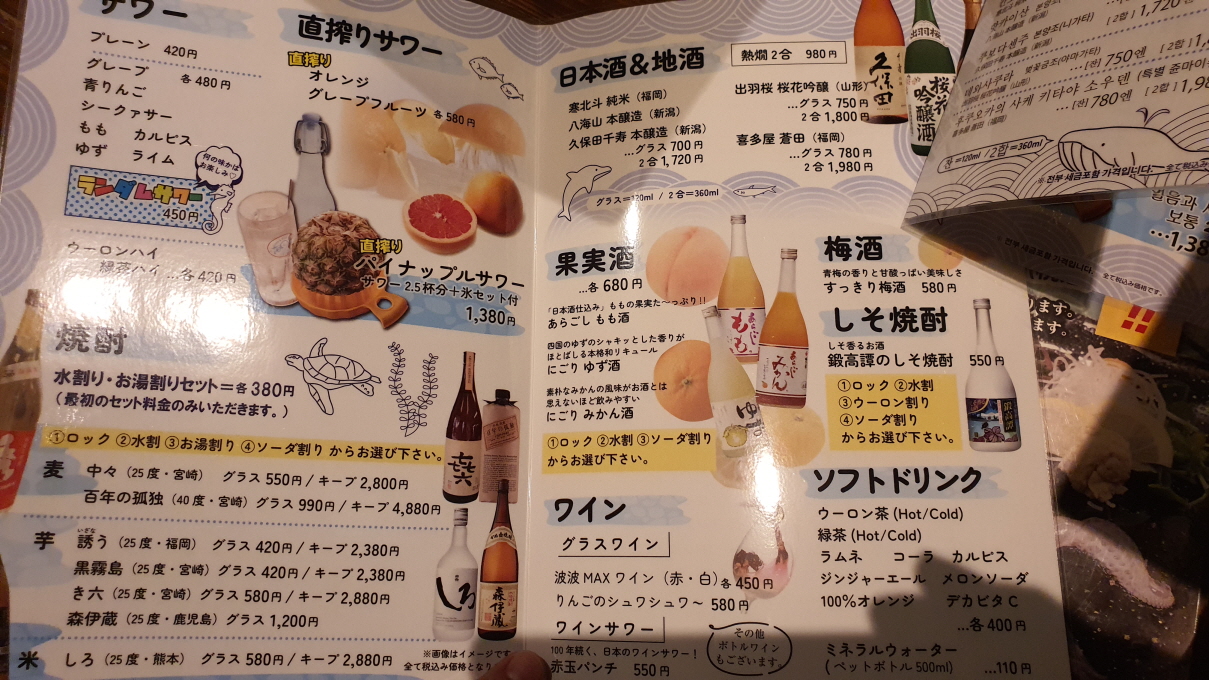 サワー
プレーン 420円
グレープ 各480円
青りんご
シークァサー
もも カルピス
ゆず ライム
何の味かは
お楽しみ♡
ランダムサワー
450円
ウーロンハイ
緑茶ハイ …各420円
直搾りサワー
直搾り
オレンジ
グレープフルーツ 各580円
直搾り
パイナップルサワー
サワー2.5杯分＋氷セット付
1,380円
焼酎
水割り・お湯割りセット＝各380円
（最初のセット料金のみいただきます。）
①ロック ②水割 ③お湯割り ④ソーダ割り からお選び下さい。
麦 中々（25度・宮崎） グラス550円 / キープ2,800円
百年の孤独（40度・宮崎） グラス990円 / キープ4,880円
いざな
芋 誘う（25度・福岡） グラス420円 / キープ2,380円
黒霧島（25度・宮崎） グラス420円 / キープ2,380円
き六（25度・宮崎） グラス580円 / キープ2,880円
森伊蔵（25度・鹿児島） グラス1,200円
米 しろ（25度・熊本） グラス580円 / キープ2,880円
㐂六
しろ
※画像はイメージです
全て税込み価格となり
日本酒＆地酒
熱燗2合 980円
寒北斗 純米（福岡）
八海山 本醸造（新潟）
久保田千寿 本醸造（新潟）
…グラス700円
2合1,720円
出羽桜 桜花吟醸（山形）
…グラス750円
2合1,800円
喜多屋 蒼田（福岡）
…グラス780円
2合1,980円
グラス＝120ml / 2合＝360ml
久保田
出羽桜
桜花
吟醸酒
果実酒
…各680円
「日本酒仕込み」ももの果実た〜っぷり!!
あらごし もも酒
四国のゆずのシャキッとした香りが
ほとばしる本格和リキュール
にごり ゆず酒
素朴なみかんの風味がお酒とは
思えないほど飲みやすい
にごり みかん酒
①ロック ②水割 ③ソーダ割り
からお選び下さい。
もも
ゆず
梅酒
青梅の香りと甘酸っぱい美味しさ
すっきり梅酒 580円
しそ焼酎
しそ香るお酒
鍛高譚のしそ焼酎 550円
①ロック ②水割
③ウーロン割り
④ソーダ割り
からお選び下さい。
鍛高譚
ワイン
グラスワイン
波波MAXワイン（赤・白）各450円
りんごのシュワシュワ〜 580円
ワインサワー
100年続く、日本のワインサワー！
赤玉パンチ 550円
その他
ボトルワイン
もございます。
ソフトドリンク
ウーロン茶 (Hot/Cold)
緑茶 (Hot/Cold)
ラムネ コーラ カルピス
ジンジャーエール メロンソーダ
100%オレンジ デカビタC
…各400円
ミネラルウォーター
（ペットボトル500ml） …110円
[2합] 1,720
750엔
780엔
잔＝120ml / 2합＝360ml
※ 전부 세금포함 가격입니다.
보통
…1,38
※ 전부 세금포함 가격입니다.
ます。
ます。
!!